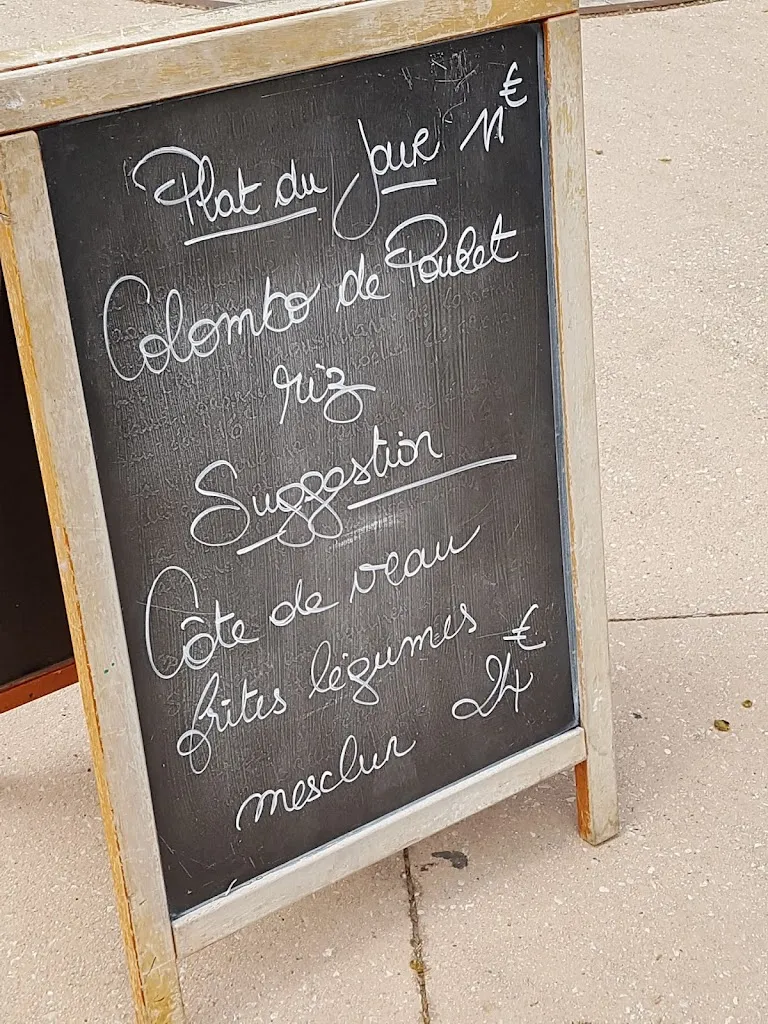 Plat du Jour 11€
Colombo de Poulet
riz
Suggestion
Côte de veau
frites légumes 24€
mesclun